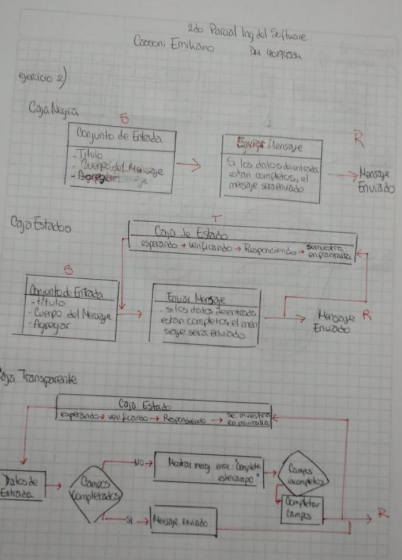 2do Parcial Ing del Software
Cassoni Emiliano
ejercicio 2)
Caja Negra
S
Conjunto de Entrada
- Titulo
- Cuerpo del Mensaje
- Agregar
Enviar Mensaje
Si los datos de entrada
estan completos, el
mesaje sera enviado
R
Mensaje
Enviado
Caja Estados
T
Caja de Estado
esperando → verificando → Respondiendo → se muestra
en pantalla
S
Conjunto de Entrada
- titulo
- Cuerpo del Mensaje
- Agregar
Enviar Mensaje
- si los datos de entrada
estan completos, el men
saje sera enviado
Mensaje
Enviado
R
Caja Transparente
Caja Estado
esperando → verificando → Respondiendo → se muestra
en pantalla
Datos de
Entrada
Campos
Completados
NO
Mostrar mensj error "Complete
este campo"
Campos
incompletos
Completar
campos
SI
Mensaje enviado
R